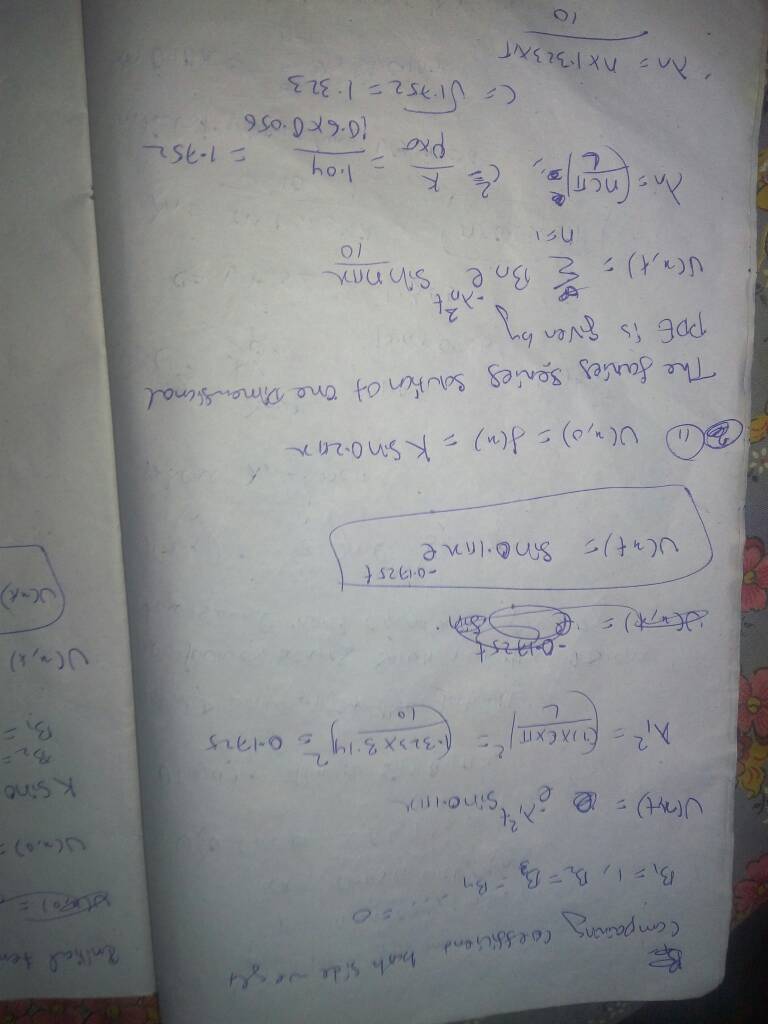 Comparing coefficient both side we get
B₁ = 1, B₂ = B₃ = B₄ ..... = 0
U(x,t) = e^{-λ₁²t} sin0.1πx
λ₁² = (1×c×π/L)² = (1.323×3.14/10)² = 0.1725
U(x,t) = sin0.1πx e^{-0.1725t}
(11) U(x,0) = f(x) = K sin0.2πx
The series solution of one Dimensional
PDE is given by
U(x,t) = Σ_{n=1} Bn e^{-λn²t} sin nπx/10
λn = (ncπ/L), c² = K/ρ×σ = 1.04/10.6×0.056 = 1.752
C = √1.752 = 1.323
λn = n×1.323×π/10
Initial tem
U(x,0) =
K sin0
B₂ =
B₁ =
U(x,t)
U(x,t)